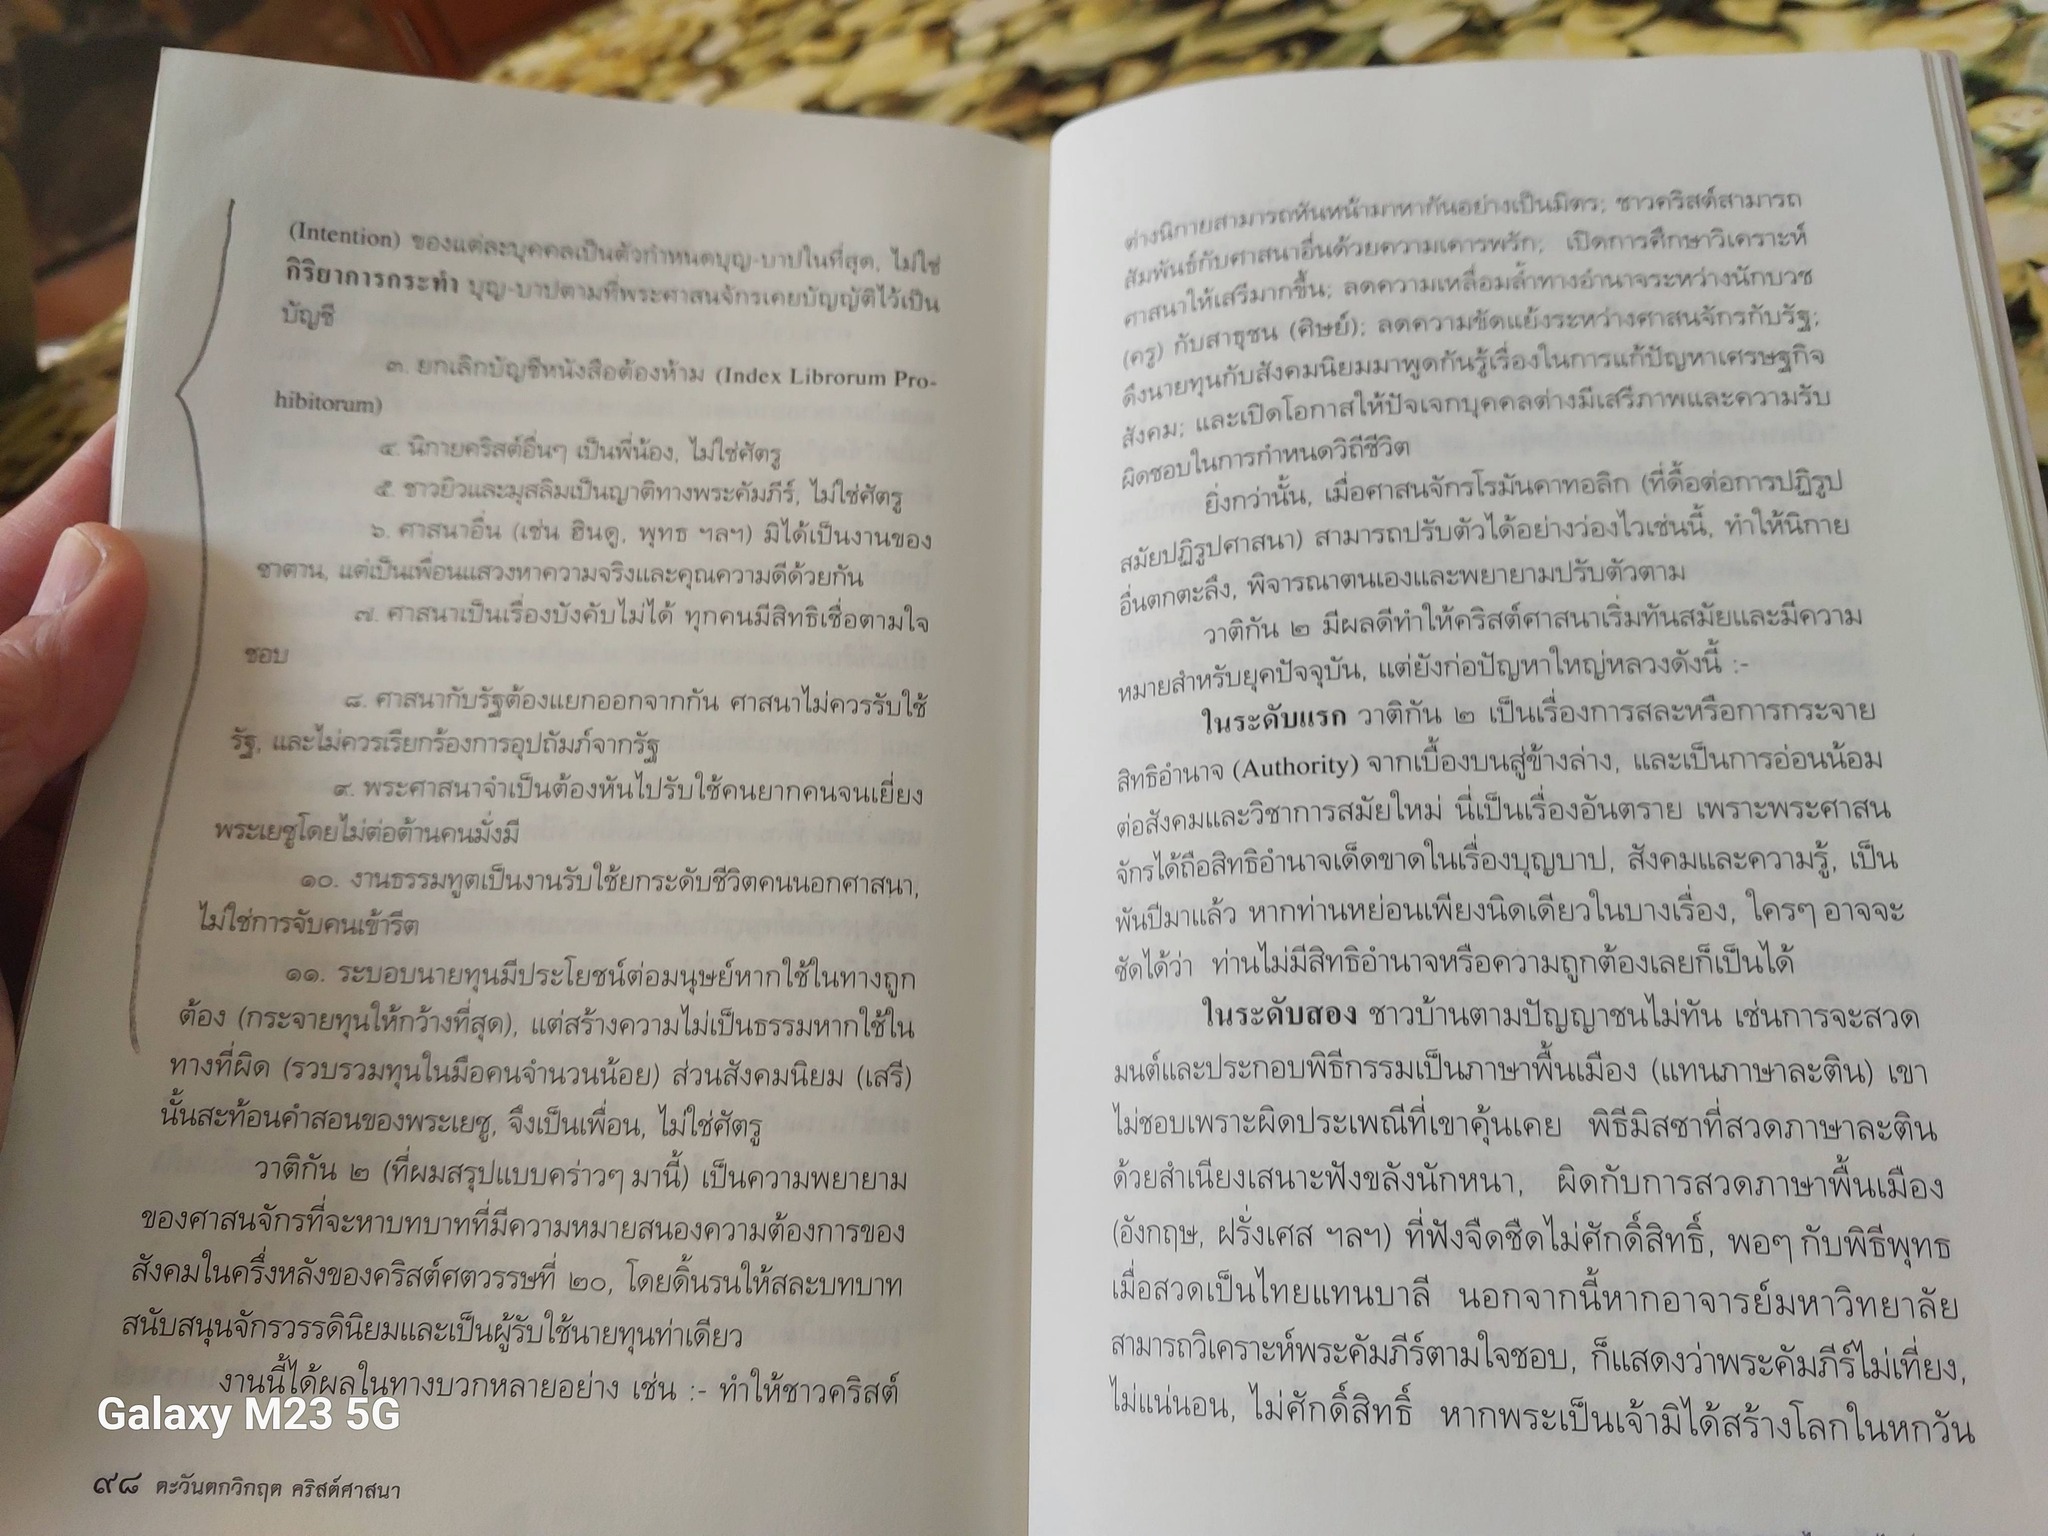 (Intention) ของแต่ละบุคคลเป็นตัวกำหนดบุญ-บาปในที่สุด, ไม่ใช่
กิริยาการกระทำ บุญ-บาปตามที่พระศาสนจักรเคยบัญญัติไว้เป็น
บัญชี
๓. ยกเลิกบัญชีหนังสือต้องห้าม (Index Librorum Pro-
hibitorum)
๔. นิกายคริสต์อื่นๆ เป็นพี่น้อง, ไม่ใช่ศัตรู
๕. ชาวยิวและมุสลิมเป็นญาติทางพระคัมภีร์, ไม่ใช่ศัตรู
๖. ศาสนาอื่น (เช่น ฮินดู, พุทธ ฯลฯ) มิได้เป็นงานของ
ซาตาน, แต่เป็นเพื่อนแสวงหาความจริงและคุณความดีด้วยกัน
๗. ศาสนาเป็นเรื่องบังคับไม่ได้ ทุกคนมีสิทธิเชื่อตามใจ
ชอบ
๘. ศาสนากับรัฐต้องแยกออกจากกัน ศาสนาไม่ควรรับใช้
รัฐ, และไม่ควรเรียกร้องการอุปถัมภ์จากรัฐ
๙. พระศาสนาจำเป็นต้องหันไปรับใช้คนยากคนจนเยี่ยง
พระเยซูโดยไม่ต่อต้านคนมั่งมี
๑๐. งานธรรมทูตเป็นงานรับใช้ยกระดับชีวิตคนนอกศาสนา,
ไม่ใช่การจับคนเข้ารีต
๑๑. ระบอบนายทุนมีประโยชน์ต่อมนุษย์หากใช้ในทางถูก
ต้อง (กระจายทุนให้กว้างที่สุด), แต่สร้างความไม่เป็นธรรมหากใช้ใน
ทางที่ผิด (รวบรวมทุนในมือคนจำนวนน้อย) ส่วนสังคมนิยม (เสรี)
นั้นสะท้อนคำสอนของพระเยซู, จึงเป็นเพื่อน, ไม่ใช่ศัตรู
วาติกัน ๒ (ที่ผมสรุปแบบคร่าวๆ มานี้) เป็นความพยายาม
ของศาสนจักรที่จะหาบทบาทที่มีความหมายสนองความต้องการของ
สังคมในครึ่งหลังของคริสต์ศตวรรษที่ ๒๐, โดยดิ้นรนให้สละบทบาท
สนับสนุนจักรวรรดินิยมและเป็นผู้รับใช้นายทุนท่าเดียว
งานนี้ได้ผลในทางบวกหลายอย่าง เช่น :- ทำให้ชาวคริสต์
Galaxy M23 5G
๙๘ ตะวันตกวิกฤต คริสต์ศาสนา
ต่างนิกายสามารถหันหน้ามาหากันอย่างเป็นมิตร; ชาวคริสต์สามารถ
สัมพันธ์กับศาสนาอื่นด้วยความเคารพรัก; เปิดการศึกษาวิเคราะห์
ศาสนาให้เสรีมากขึ้น; ลดความเหลื่อมล้ำทางอำนาจระหว่างนักบวช
(ครู) กับสาธุชน (ศิษย์); ลดความขัดแย้งระหว่างศาสนจักรกับรัฐ;
ดึงนายทุนกับสังคมนิยมมาพูดกันรู้เรื่องในการแก้ปัญหาเศรษฐกิจ
สังคม; และเปิดโอกาสให้ปัจเจกบุคคลต่างมีเสรีภาพและความรับ
ผิดชอบในการกำหนดวิถีชีวิต
ยิ่งกว่านั้น, เมื่อศาสนจักรโรมันคาทอลิก (ที่ดื้อต่อการปฏิรูป
สมัยปฏิรูปศาสนา) สามารถปรับตัวได้อย่างว่องไวเช่นนี้, ทำให้นิกาย
อื่นตกตะลึง, พิจารณาตนเองและพยายามปรับตัวตาม
วาติกัน ๒ มีผลดีทำให้คริสต์ศาสนาเริ่มทันสมัยและมีความ
หมายสำหรับยุคปัจจุบัน, แต่ยังก่อปัญหาใหญ่หลวงดังนี้ :-
ในระดับแรก วาติกัน ๒ เป็นเรื่องการสละหรือการกระจาย
สิทธิอำนาจ (Authority) จากเบื้องบนสู่ข้างล่าง, และเป็นการอ่อนน้อม
ต่อสังคมและวิชาการสมัยใหม่ นี่เป็นเรื่องอันตราย เพราะพระศาสน
จักรได้ถือสิทธิอำนาจเด็ดขาดในเรื่องบุญบาป, สังคมและความรู้, เป็น
พันปีมาแล้ว หากท่านหย่อนเพียงนิดเดียวในบางเรื่อง, ใครๆ อาจจะ
ซัดได้ว่า ท่านไม่มีสิทธิอำนาจหรือความถูกต้องเลยก็เป็นได้
ในระดับสอง ชาวบ้านตามปัญญาชนไม่ทัน เช่นการจะสวด
มนต์และประกอบพิธีกรรมเป็นภาษาพื้นเมือง (แทนภาษาละติน) เขา
ไม่ชอบเพราะผิดประเพณีที่เขาคุ้นเคย พิธีมิสซาที่สวดภาษาละติน
ด้วยสำเนียงเสนาะฟังขลังนักหนา, ผิดกับการสวดภาษาพื้นเมือง
(อังกฤษ, ฝรั่งเศส ฯลฯ) ที่ฟังจืดชืดไม่ศักดิ์สิทธิ์, พอๆ กับพิธีพุทธ
เมื่อสวดเป็นไทยแทนบาลี นอกจากนี้หากอาจารย์มหาวิทยาลัย
สามารถวิเคราะห์พระคัมภีร์ตามใจชอบ, ก็แสดงว่าพระคัมภีร์ไม่เที่ยง,
ไม่แน่นอน, ไม่ศักดิ์สิทธิ์ หากพระเป็นเจ้ามิได้สร้างโลกในหกวัน